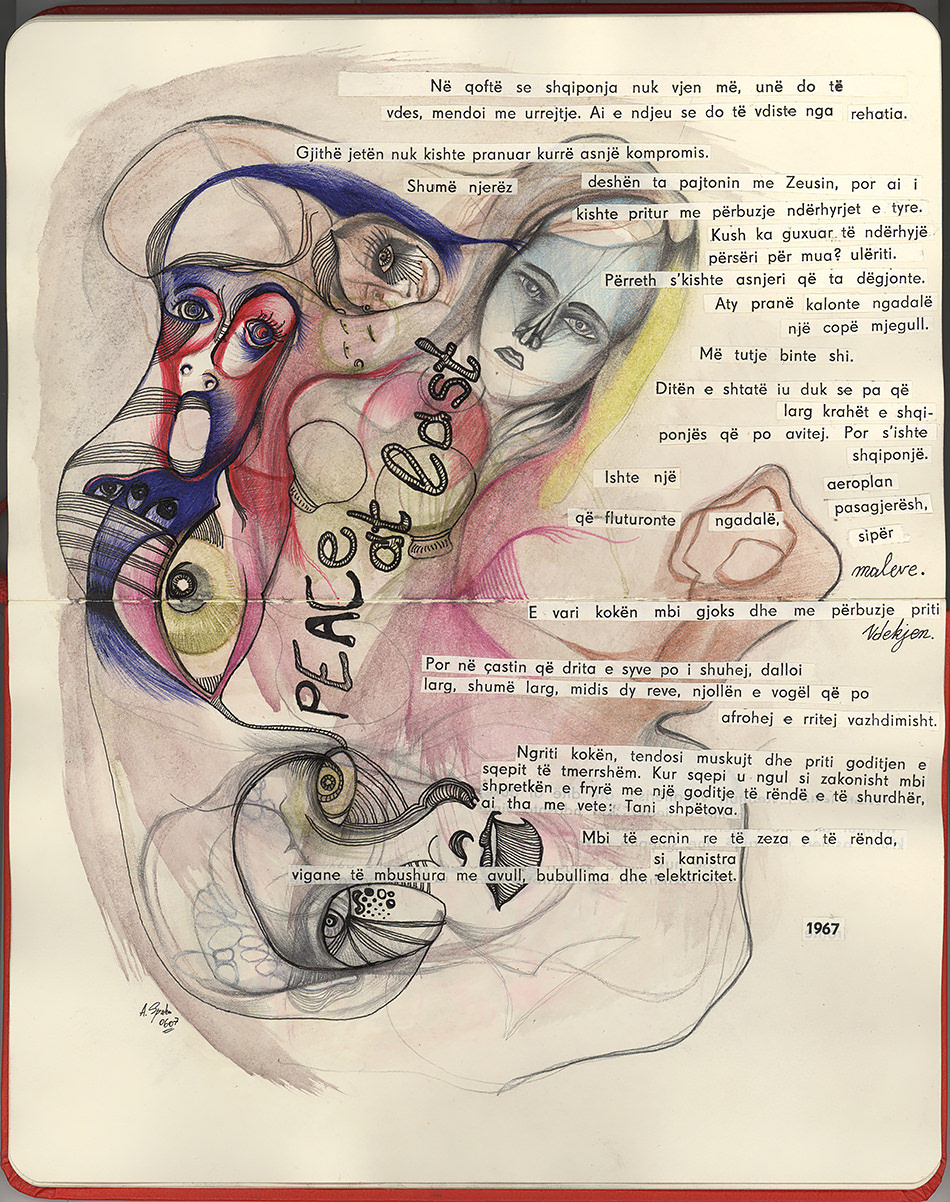 Në qoftë se shqiponja nuk vjen më, unë do të
vdes, mendoi me urrejtje. Ai e ndjeu se do të vdiste nga rehatia.
Gjithë jetën nuk kishte pranuar kurrë asnjë kompromis.
Shumë njerëz deshën ta pajtonin me Zeusin, por ai i
kishte pritur me përbuzje ndërhyrjet e tyre.
Kush ka guxuar të ndërhyjë
përsëri për mua? ulëriti.
Përreth s'kishte asnjeri që ta dëgjonte.
Aty pranë kalonte ngadalë
një copë mjegull.
Më tutje binte shi.
Ditën e shtatë iu duk se pa që
larg krahët e shqi-
ponjës që po avitej. Por s'ishte
shqiponjë.
Ishte një aeroplan
pasagjerësh,
që fluturonte ngadalë, sipër
maleve.
PEACe
at last
E vari kokën mbi gjoks dhe me përbuzje priti
Vdekjen.
Por në çastin që drita e syve po i shuhej, dalloi
larg, shumë larg, midis dy reve, njollën e vogël që po
afrohej e rritej vazhdimisht.
Ngriti kokën, tendosi muskujt dhe priti goditjen e
sqepit të tmerrshëm. Kur sqepi u ngul si zakonisht mbi
shpretkën e fryrë me një goditje të rëndë e të shurdhër,
ai tha me vete: Tani shpëtova.
Mbi të ecnin re të zeza e të rënda,
si kanistra
vigane të mbushura me avull, bubullima dhe elektricitet.
1967
0607